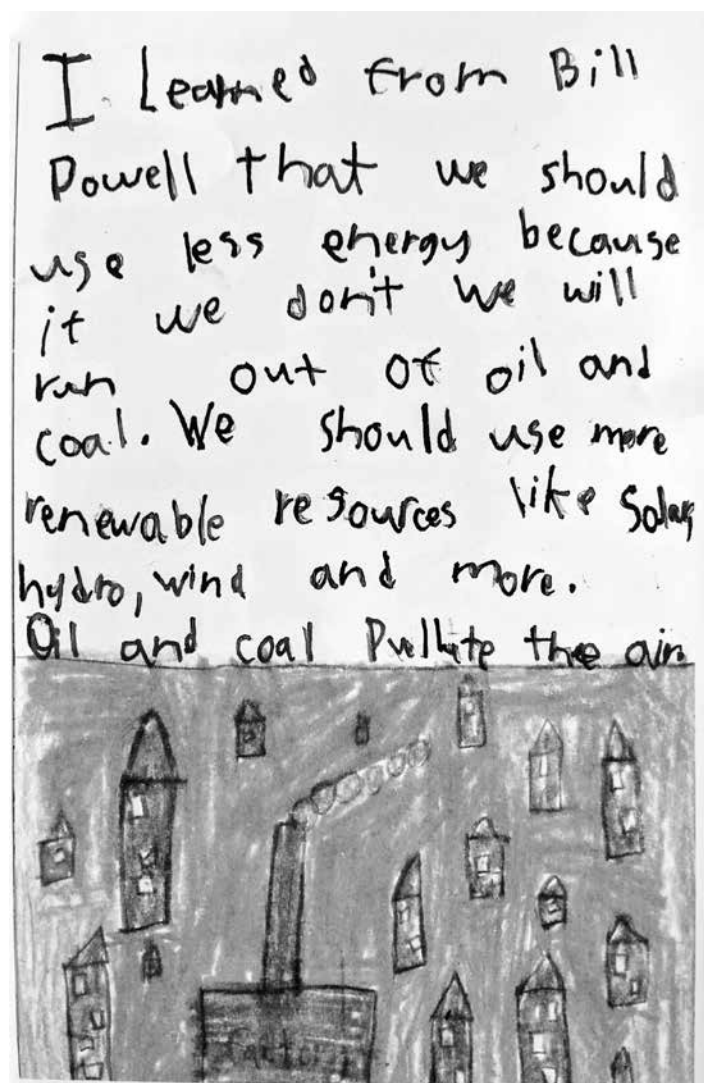 I Learned from Bill
Powell that we should
use less energy because
if we don't we will
run out of oil and
coal. We should use more
renewable resources like Solar,
hydro, wind and more.
Oil and coal Pullute the air.
Factory